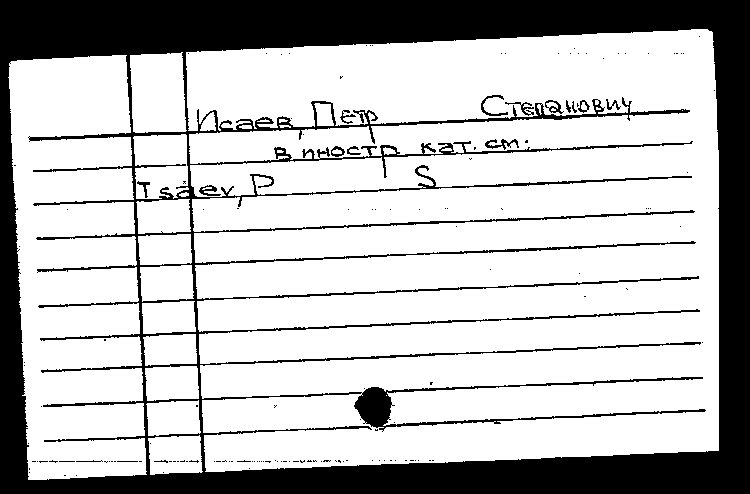 Исаев, Петр Степанович
в иностр. кат. см.
Isaev, P S